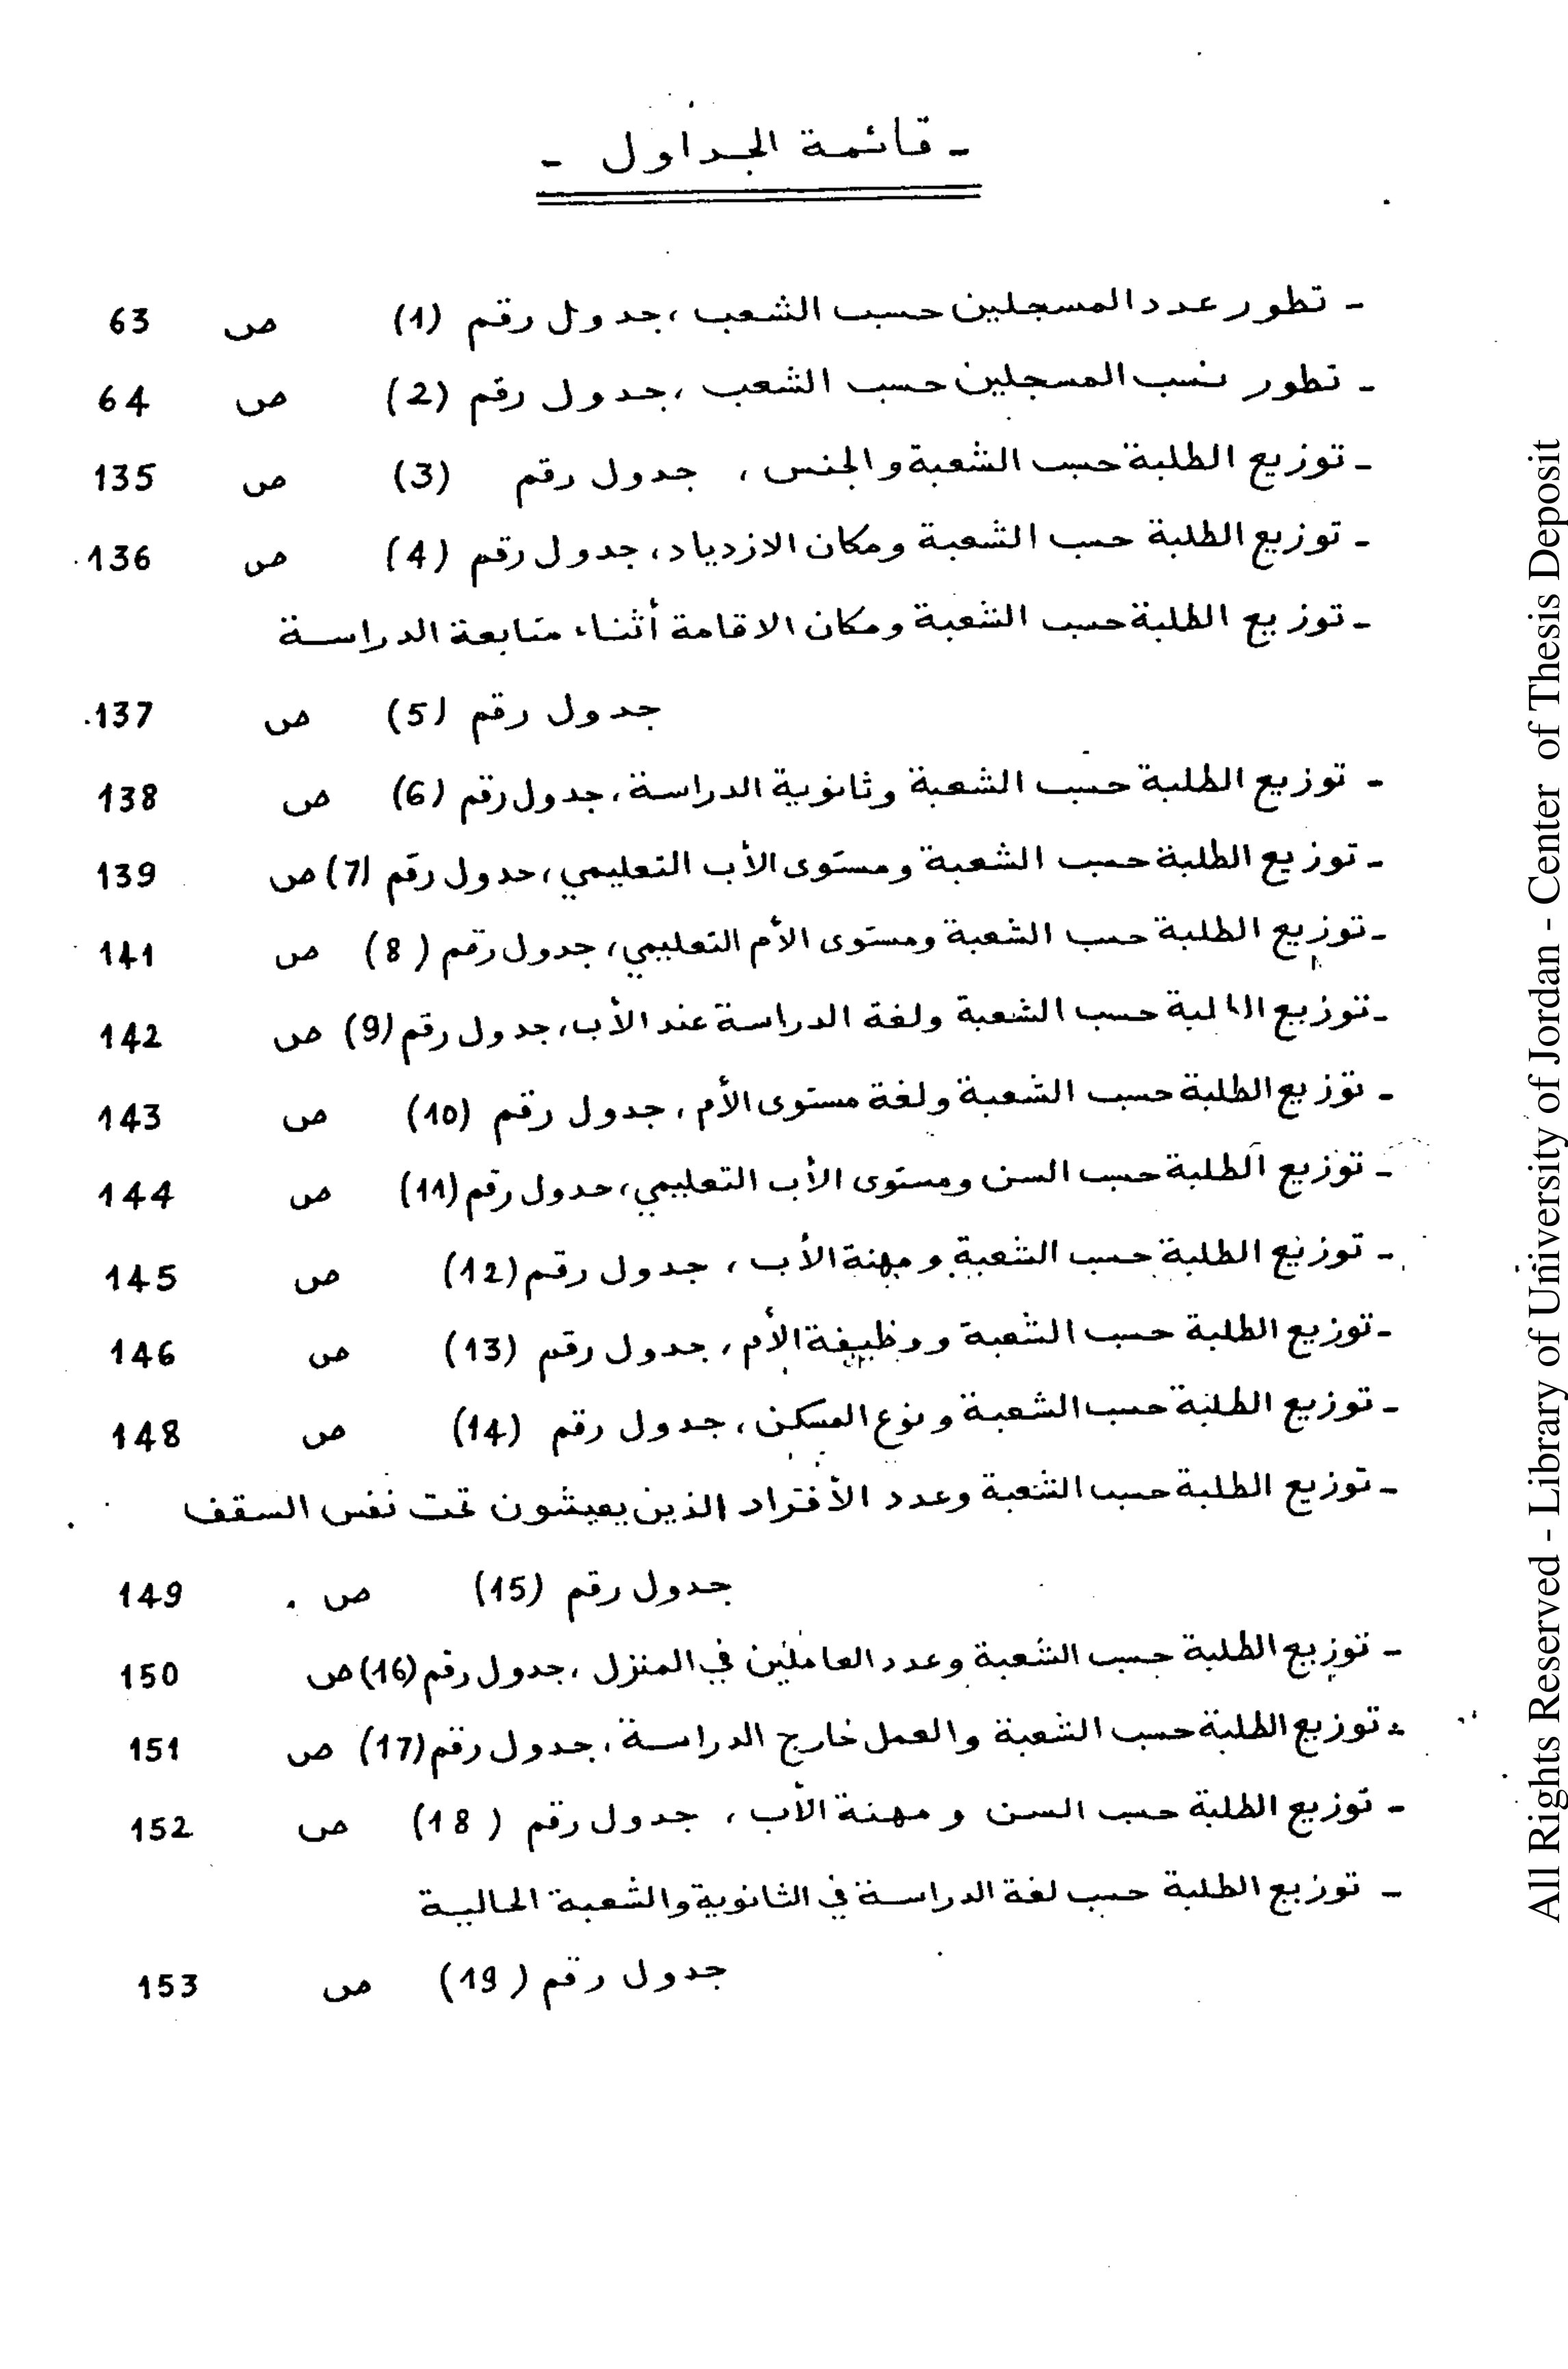 - قائمة الجداول -
- تطور عدد المسجلين حسب الشعب ، جدول رقم (1) ص 63
- تطور نسب المسجلين حسب الشعب ، جدول رقم (2) ص 64
- توزيع الطلبة حسب الشعبة والجنس ، جدول رقم (3) ص 135
- توزيع الطلبة حسب الشعبة ومكان الازدياد ، جدول رقم (4) ص 136.
- توزيع الطلبة حسب الشعبة ومكان الاقامة أثناء متابعة الدراسة
جدول رقم (5) ص 137.
- توزيع الطلبة حسب الشعبة وثانوية الدراسة ، جدول رقم (6) ص 138
- توزيع الطلبة حسب الشعبة ومستوى الأب التعليمي ، جدول رقم (7) ص 139
- توزيع الطلبة حسب الشعبة ومستوى الأم التعليمي ، جدول رقم (8) ص 141
- توزيع الطلبة حسب الشعبة ولغة الدراسة عند الأب ، جدول رقم (9) ص 142
- توزيع الطلبة حسب الشعبة ولغة مستوى الأم ، جدول رقم (10) ص 143
- توزيع الطلبة حسب السن ومستوى الأب التعليمي ، جدول رقم (11) ص 144
- توزيع الطلبة حسب الشعبة ومهنة الأب ، جدول رقم (12) ص 145
- توزيع الطلبة حسب الشعبة ووظيفة الأم ، جدول رقم (13) ص 146
- توزيع الطلبة حسب الشعبة ونوع المسكن ، جدول رقم (14) ص 148
- توزيع الطلبة حسب الشعبة وعدد الأفراد الذين يعيشون تحت نفس السقف
جدول رقم (15) ص . 149
- توزيع الطلبة حسب الشعبة وعدد العاملين في المنزل ، جدول رقم (16) ص 150
- توزيع الطلبة حسب الشعبة والعمل خارج الدراسة ، جدول رقم (17) ص 151
- توزيع الطلبة حسب السن ومهنة الأب ، جدول رقم (18) ص 152
- توزيع الطلبة حسب لغة الدراسة في الثانوية والشعبة الحالية
جدول رقم (19) ص 153
All Rights Reserved - Library of University of Jordan - Center of Thesis Deposit